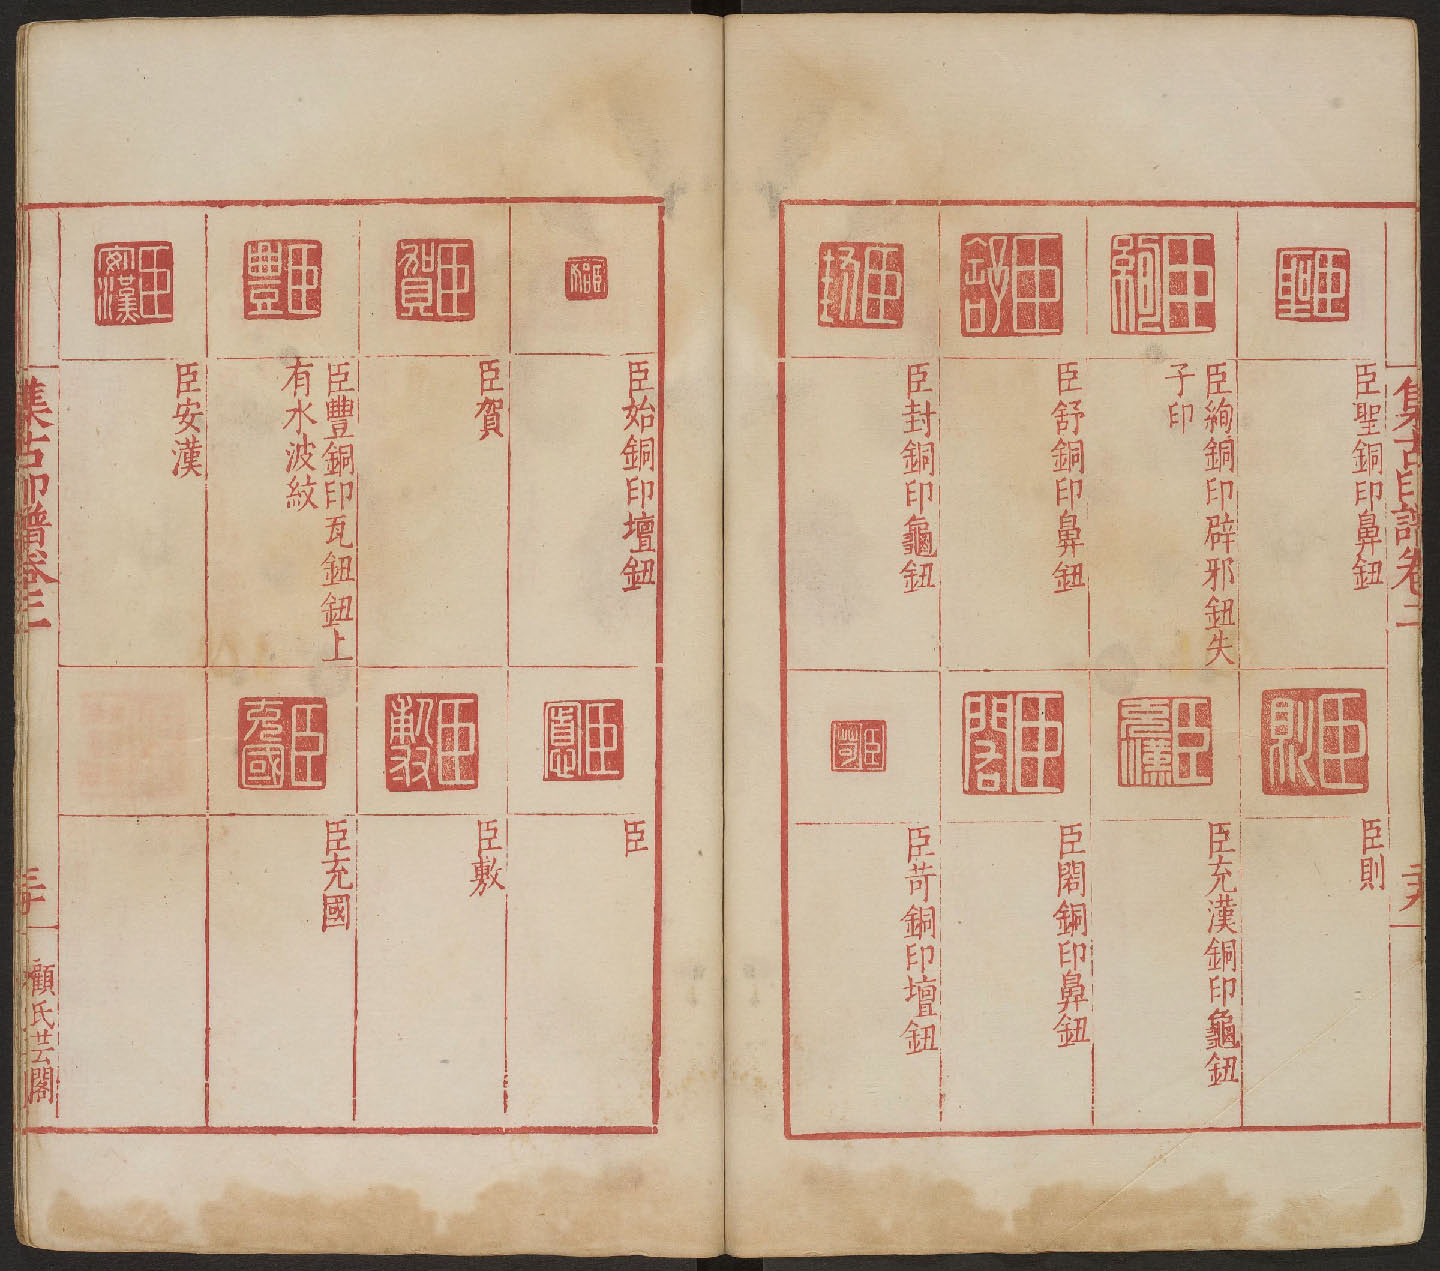 集古印譜卷二
臣聖銅印鼻鈕
臣絢銅印辟邪鈕失
子印
臣舒銅印鼻鈕
臣封銅印龜鈕
臣則
臣充漢銅印龜鈕
臣閣銅印鼻鈕
臣苛銅印壇鈕
臣始銅印壇鈕
臣賀
臣豐銅印瓦鈕鈕上
有水波紋
臣安漢
臣
臣敷
臣充國
集古印譜卷三
顧氏芸閣